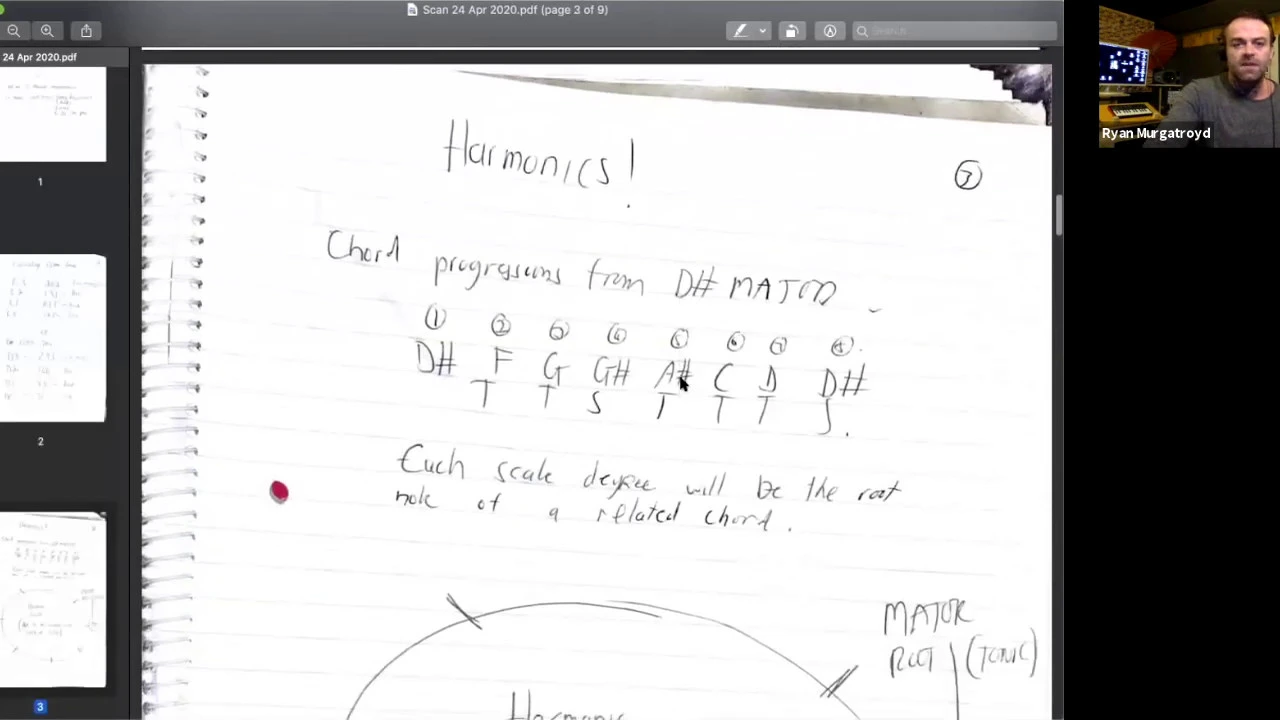 Scan 24 Apr 2020.pdf (page 3 of 9)
Search
24 Apr 2020.pdf
Ryan Murgatroyd
1
2
3
Harmonics!
3
Chord progressions from D# MAJOR
1 2 3 4 5 6 7 8
D# F G G# A# C D D#
T T S T T T S.
Each scale degree will be the root
note of a related chord.
MAJOR
ROOT (TONIC)
Harmonic